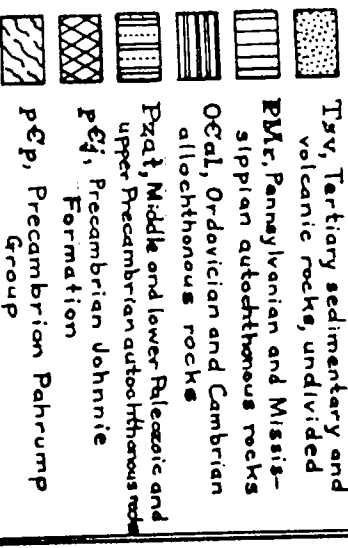 Tsv, Tertiary sedimentary and
volcanic rocks, undivided
PMs, Pennsylvanian and Missis-
sippian autochthonous rocks
O€al, Ordovician and Cambrian
allochthonous rocks
Pzat, Middle and lower Paleozoic and
upper Precambrian autochthonous rocks
p€j, Precambrian Johnnie
Formation
p€p, Precambrian Pahrump
Group